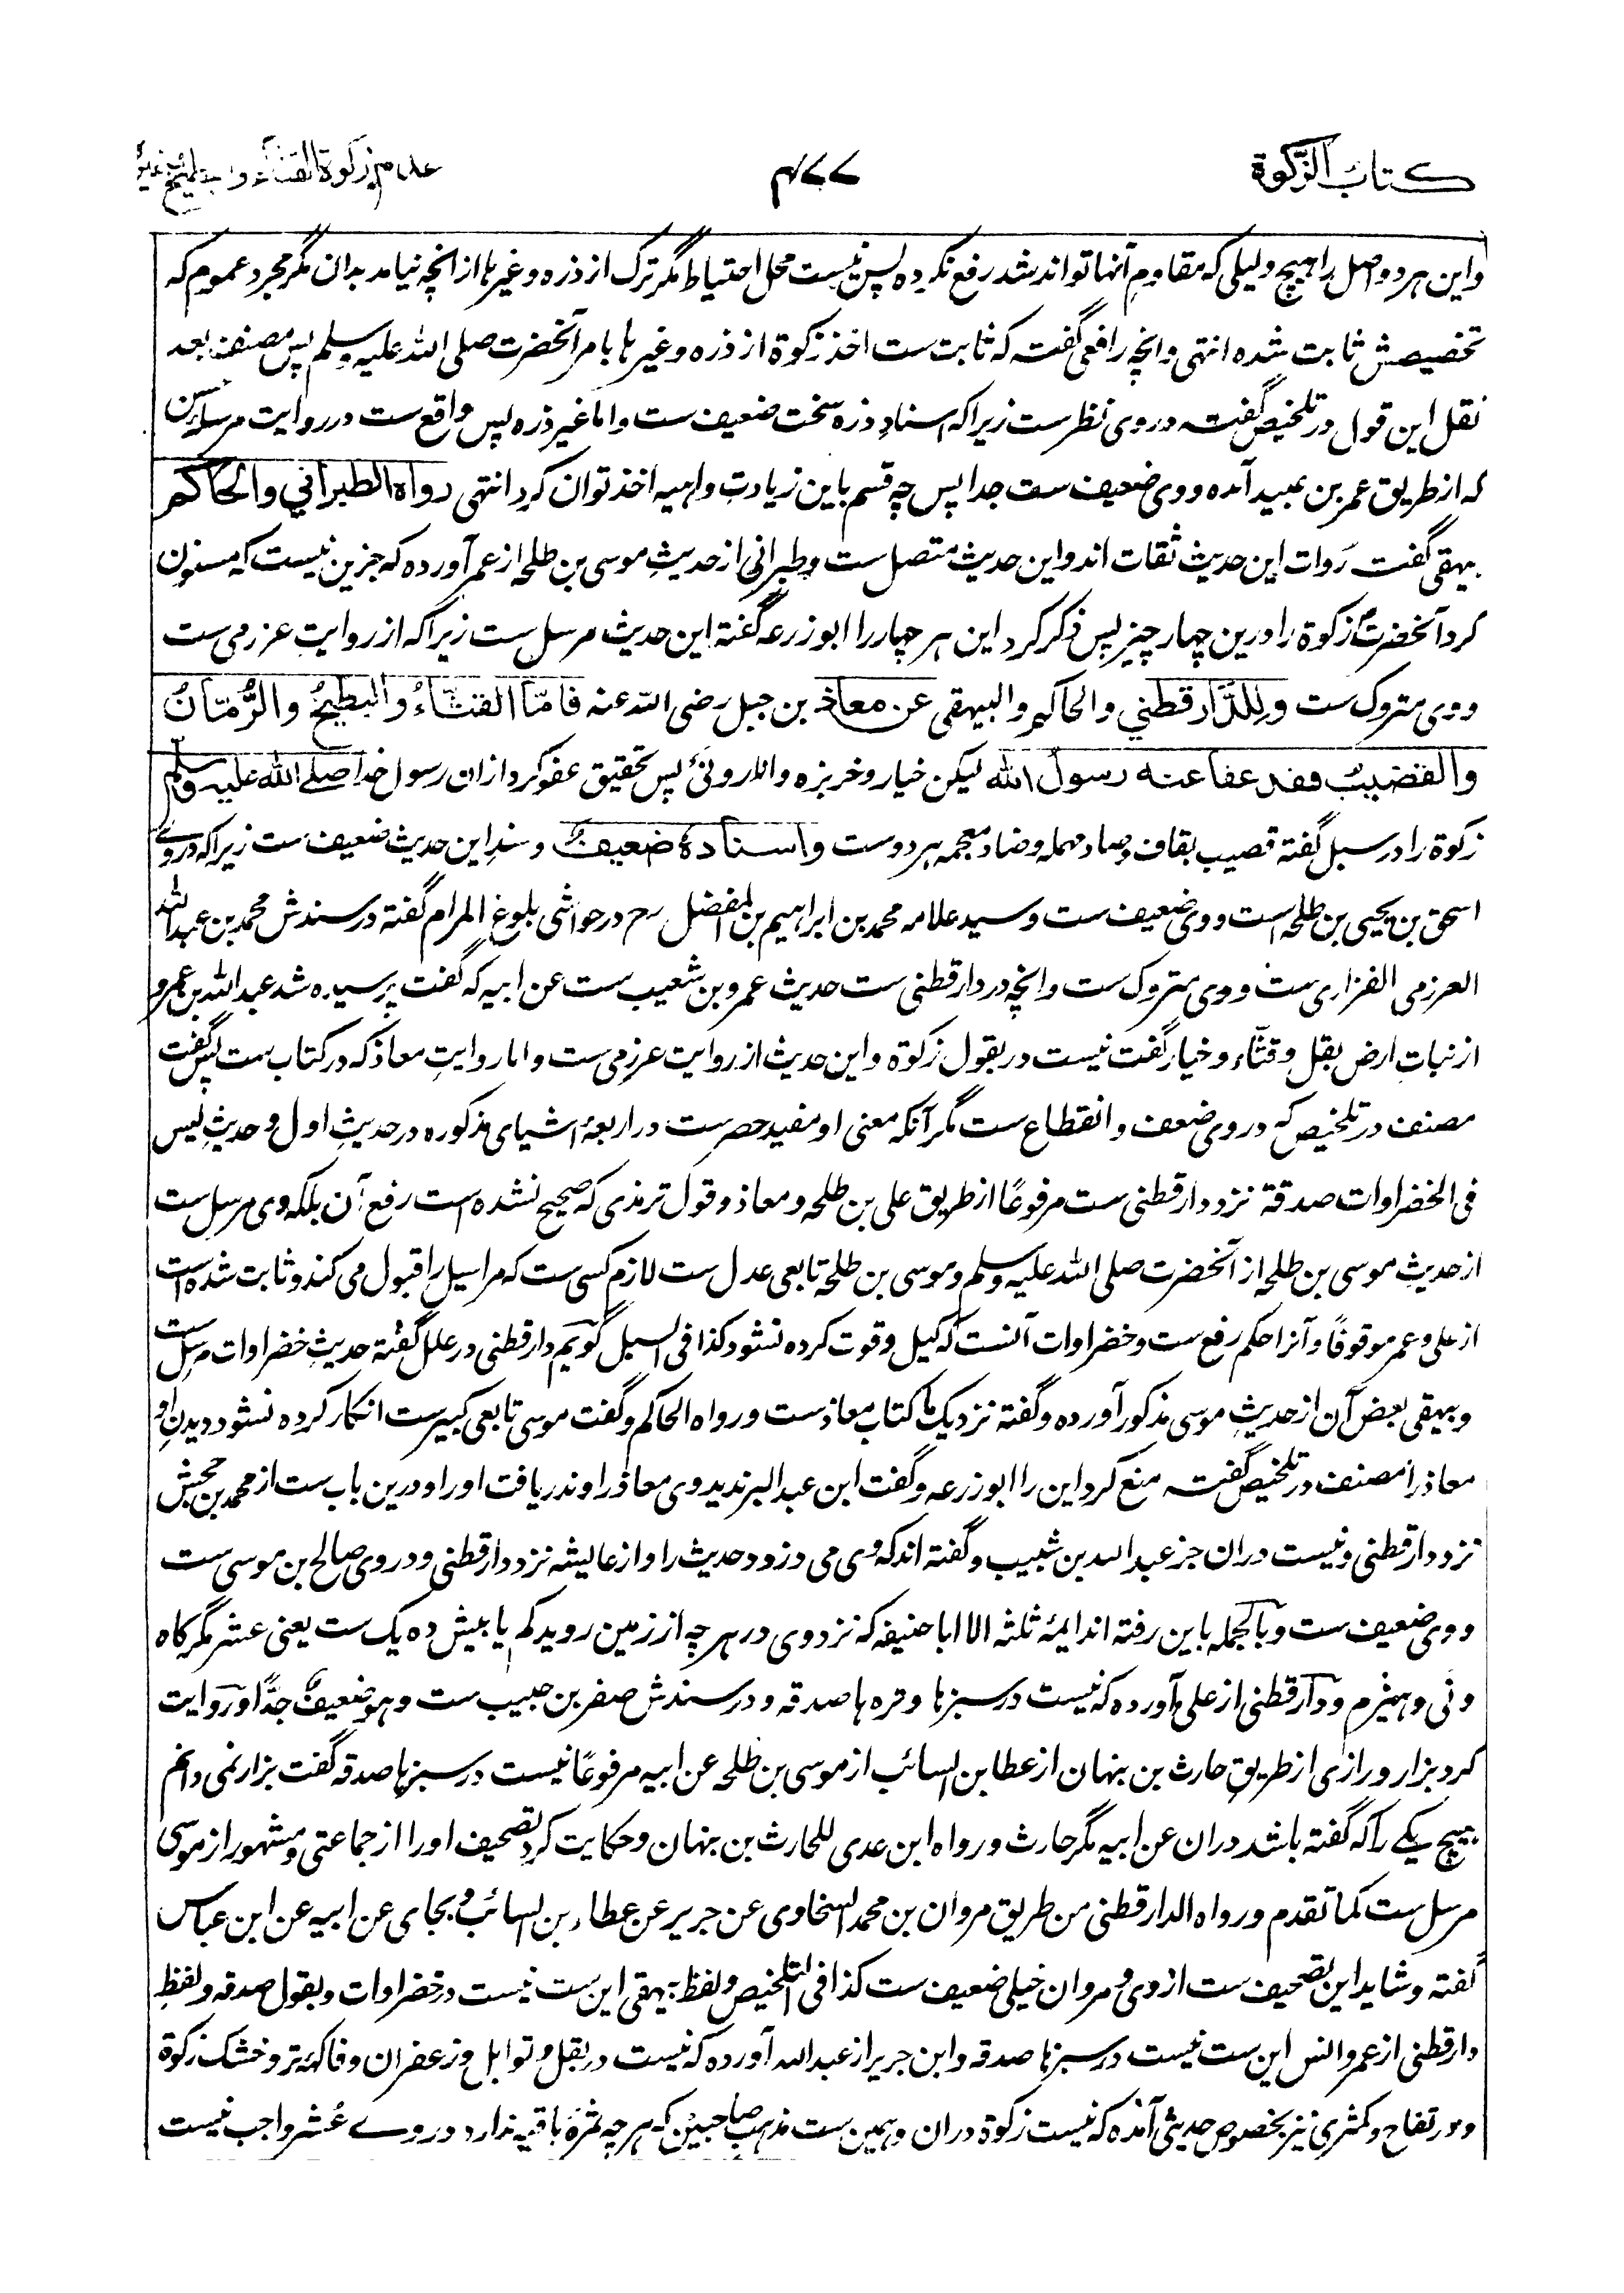 كتاب الزكوة ٤٧٧ عدم زكوة القثاء والبطيخ وغيره
واین هر دو اصل را هیچ دلیلی که مقاوم آنها تواند شد رفع نکرده پس نیست محل احتیاط مگر ترک از ذره و غیرها از انچه نیامد بدان مگر مجرد عموم که
تخصیصش ثابت شده انتهی وانچه رافعی گفت که ثابت ست اخذ زکوة از ذره و غیرها بامر آنحضرت صلی الله علیه وسلم پس مصنف بعد
نقل این قول در تلخیص گفته در وی نظر ست زیرا که اسناد ذره سخت ضعیف ست واما غیر ذره پس واقع ست در روایت مرسله حسن
که از طریق عمر بن عبید آمده و وی ضعیف ست جدا پس چه قسم باین زیادت واهیه اخذ توان کرد انتهی رواه الطبراني والحاكم
بیهقی گفت رَوات این حدیث ثقات اند و این حدیث متصل ست وطبرانی از حدیث موسی بن طلحه از عمر آورده که جزین نیست که مسنون
کرد آنحضرت زکوة را درین چهار چیز پس ذکر کرد این هر چهار را ابو زرعه گفته این حدیث مرسل ست زیرا که از روایت عزرمی ست
و وی متروک ست وللدَّارقطني والحاکم والبیهقی عن معاذ بن جبل رضی الله عنه فامّا القثّاءُ والبطیخُ والرُّمّانُ
والقضیبُ فقد عفا عنه رسول الله لیکن خیار و خربزه و انار ونَی پس تحقیق عفو کرد ازان رسول خدا صلے الله علیه وسلم
زکوة را در سبل گفته قصیب بقاف وصاد مهمله وضاد معجمه هر دوست واسنادهٗ ضعیفٌ وسند این حدیث ضعیف ست زیرا که دروے
اسحق بن یحیی بن طلحه است و وی ضعیف ست و سید علامه محمد بن ابراهیم بن المفضل رح در حواشی بلوغ المرام گفته در سندش محمد بن عبدالله
العرزمی الفزاری ست و وی متروک ست وانچه در دارقطنی ست حدیث عمرو بن شعیب ست عن ابیه که گفت پرسیده شد عبدالله بن عمرو
از نبات ارض بقل وقثّاء و خیار گفت نیست در بقول زکوة و این حدیث از روایت عرزمی ست واما روایت معاذ که در کتاب ست پس گفت
مصنف در تلخیص که در وی ضعف و انقطاع ست مگر آنکه معنی او مفید حصر ست در اربعهٔ اشیای مذکوره در حدیث اول و حدیث لیس
فی الخضراوات صدقة نزد دارقطنی ست مرفوعًا از طریق علی بن طلحه و معاذ و قول ترمذی که صحیح نشده است رفع آن بلکه وی مرسل ست
از حدیث موسی بن طلحه از آنحضرت صلی الله علیه وسلم و موسی بن طلحه تابعی عدل ست لازم کسی ست که مراسیل را قبول می کند و ثابت شده است
از علی و عمر موقوفًا و آنرا حکم رفع ست و خضراوات آنست که کیل و قوت کرده نشود کذا فی السبل گویم دارقطنی در علل گفته حدیث خضراوات مرسل ست
و بیهقی بعض آن از حدیث موسی مذکور آورده و گفته نزدیک ما کتاب معاذ ست ورواه الحاکم و گفت موسی تابعی کبیر ست انکار کرده نشود دیدن او
معاذ را مصنف در تلخیص گفته منع کرد این را ابو زرعه و گفت ابن عبدالبر ندید وی معاذ را و ندریافت او را و درین باب ست از محمد بن جحش
نزد دارقطنی و نیست دران جز عبدالله بن شبیب و گفته اند که وی می دزدد حدیث را و از عایشه نزد دارقطنی و در وی صالح بن موسی ست
و وی ضعیف ست و بالجمله باین رفته اند ایمهٔ ثلثه الا ابا حنیفه که نزد وی در هر چه از زمین روید کم یا بیش ده یک ست یعنی عشر مگر کاه
ونی و هیزم و دارقطنی از علی آورده که نیست در سبزها و تره ها صدقه و در سندش صقر بن حبیب ست وهو ضعیفٌ جدًّا و روایت
کرد بزار و رازی از طریق حارث بن نبهان از عطا بن السائب از موسی بن طلحه عن ابیه مرفوعًا نیست در سبزیها صدقه گفت بزار نمی دانم
هیچ یکے را که گفته باشد دران عن ابیه مگر حارث ورواه ابن عدی للحارث بن نبهان و حکایت کرد تضعیف او را از جماعتی و مشهور از موسی
مرسل ست کما تقدم ورواه الدارقطنی من طریق مروان بن محمد السنجاری عن جریر عن عطاء بن السائب و بجای عن ابیه عن ابن عباس
گفته و شاید این تصحیف ست از وی و مروان خیلی ضعیف ست کذا فی التلخیص و لفظ بیهقی این ست نیست در خضراوات و بقول صدقه و لفظ
دارقطنی از عمر و انس این ست نیست در سبزها صدقه و ابن جریر از عبدالله آورده که نیست در بقل و توابل و زعفران و فاکهه تر و خشک زکوة
و در تفاح و کمثری نیز بخصوص حدیثی آمده که نیست زکوة دران و همین ست مذهب صاحبین که هر چه ثمره باقیه ندارد دروے عُشر واجب نیست